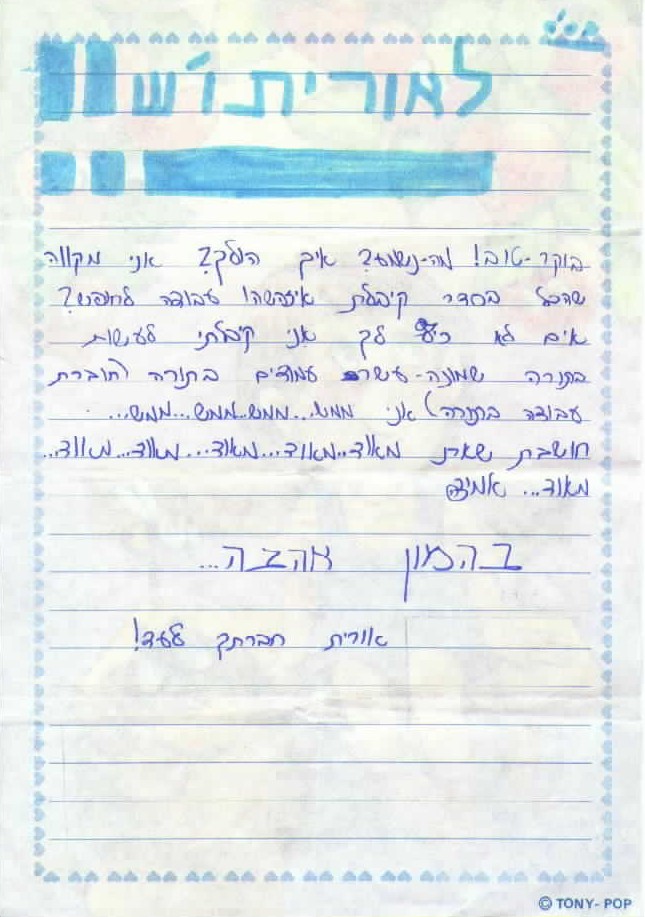 בס"ד
לאורית ו'ש !!
בוקר-טוב! מה-נשמע? איך הולך? אני מקווה
שהכל בסדר קיבלת איזהשהו עבודה לחופש?
אים לא כיף לך אני קיבלתי לעשות
בתורה שמונה-עשרה עמודים בתורה (חוברת
עבודה בתורה) אני ממש...ממש..ממש...ממש...
חושבת שאת מאוד..מאוד...מאוד...מאוד...מאוד...
מאוד... אמיצה
בהמון אהבה...
אורית חברתך לעד!
© TONY-POP